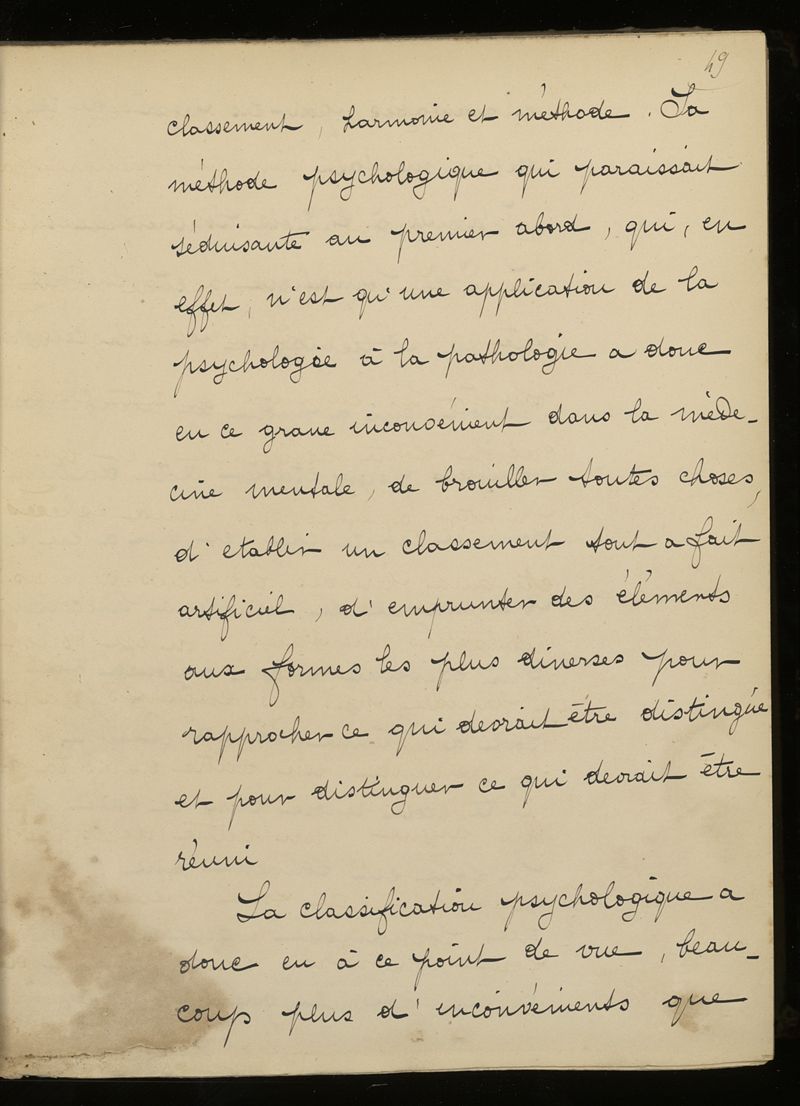 49
classement, harmonie et méthode. La
méthode psychologique qui paraissait
séduisante au premier abord, qui, en
effet, n'est qu'une application de la
psychologie à la pathologie a donc
eu ce grave inconvénient dans la méde-
cine mentale, de brouiller toutes choses,
d'etablir un classement tout a fait
artificiel, d'emprunter des éléments
aux formes les plus diverses pour
rapprocher ce qui devrait être distingué
et pour distinguer ce qui devrait être
réuni
La classification psychologique a
donc eu à ce point de vue, beau-
coup plus d'inconvénients que